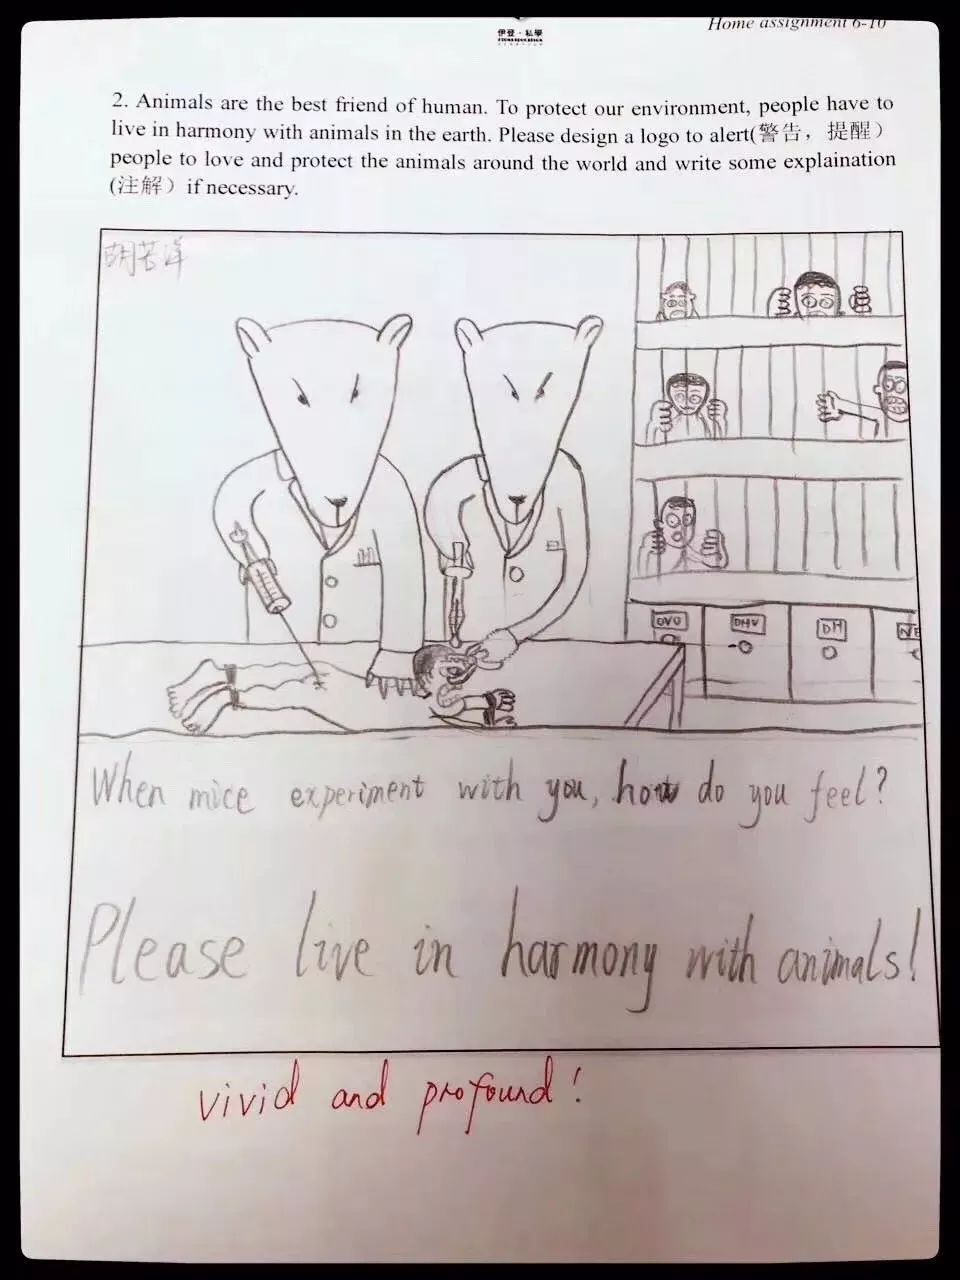 Home assignment 6-10
伊登·私學
2. Animals are the best friend of human. To protect our environment, people have to
live in harmony with animals in the earth. Please design a logo to alert(警告，提醒）
people to love and protect the animals around the world and write some explaination
(注解）if necessary.
OVO DHU DH NE
When mice experiment with you, how do you feel?
Please live in harmony with animals!
vivid and profound!